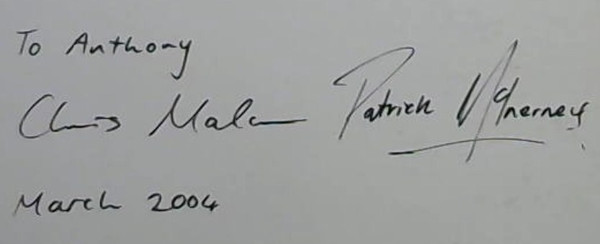 To Anthony
Chris Malan Patrick McInerney
March 2004